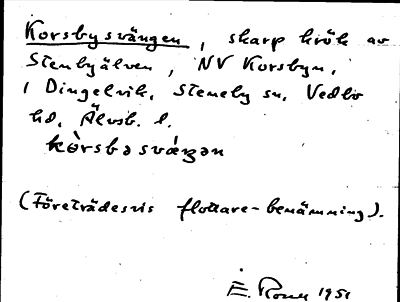 Korsbysvängen, skarp krök av
Stenbyälven, NV Korsbyn,
i Dingelvik, Steneby sn, Vedbo
hd, Älvsb. l.
kòrsbəsvǽŋən
(Företrädesvis flottare-benämning).
E. 1951